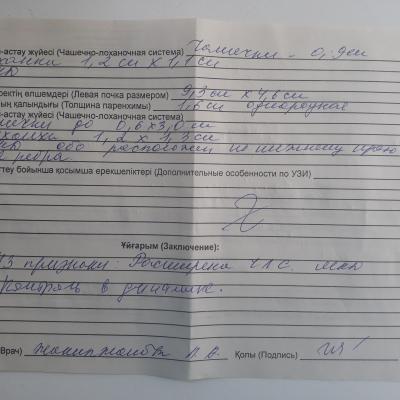 -астау жүйесі (Чашечно-лоханочная система) Чашечки - 0,9см
лоханки 1,2 см х 1,1 см
ректің өлшемдері (Левая почка размером) 9,3 см х 4,6 см
ың қалыңдығы (Толщина паренхимы) 1,6 см однородная
-астау жүйесі (Чашечно-лоханочная система)
чашечки до 0,6х3,0 см
лоханка 1,2 х 1,3 см
обе расположен по нижнему краю
ребра
ттеу бойынша қосымша ерекшеліктері (Дополнительные особенности по УЗИ)
Ұйғарым (Заключение):
УЗ признаки: Расширена ЧЛС.
контроль в динамике.
Врач)
Қолы (Подпись)